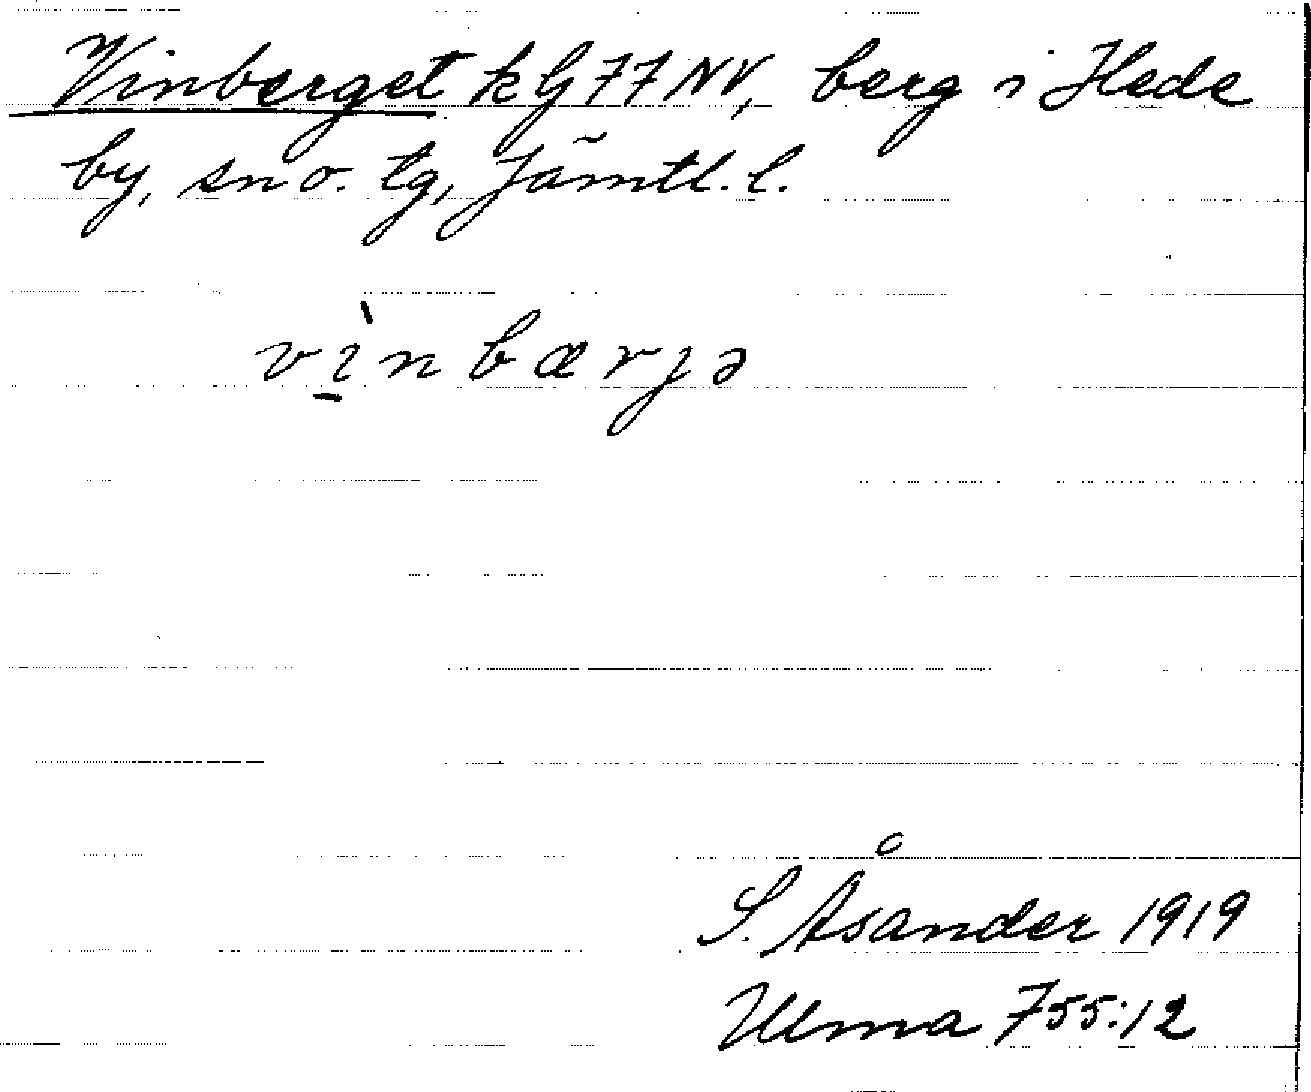 Vinberget k G 77 NV, berg i Hede
by, sn o. tg, Jämtl. l.
vı̱̀nbærjə
S. Åsander 1919
Ulma 755:12